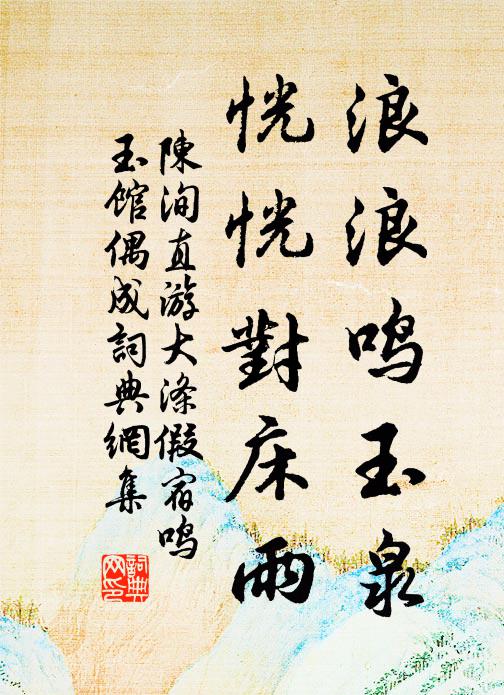 浪浪鸣玉泉
恍恍對床雨
陳洵直游大涤假宿鸣
玉馆偶成詞典網集
詞典
网印